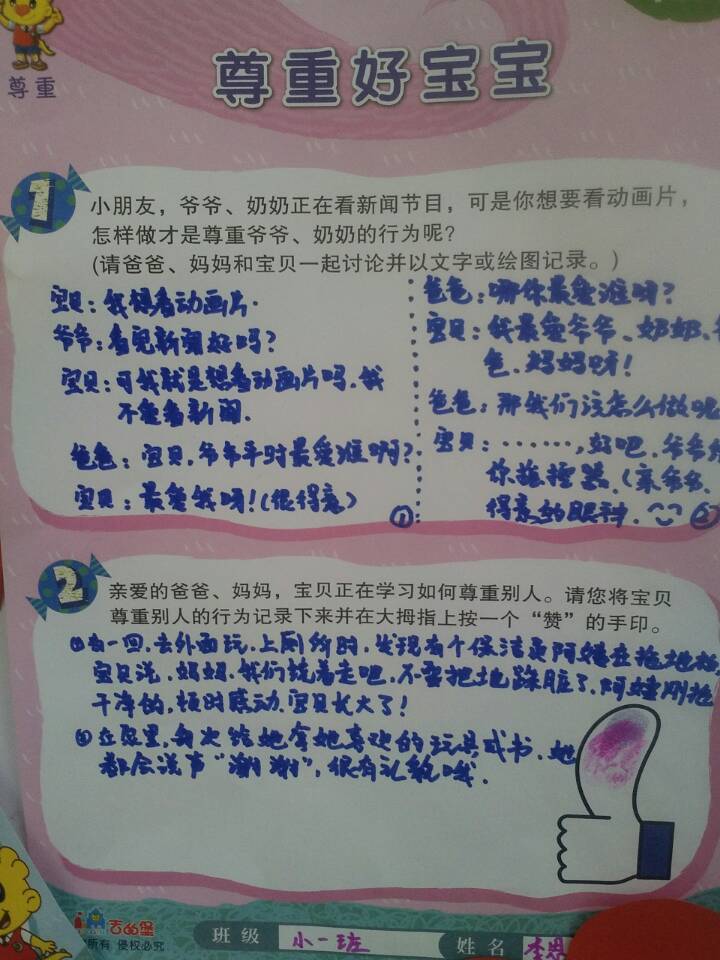 尊重
尊重好宝宝
1
小朋友，爷爷、奶奶正在看新闻节目，可是你想要看动画片，
怎样做才是尊重爷爷、奶奶的行为呢？
(请爸爸、妈妈和宝贝一起讨论并以文字或绘图记录。)
宝贝：我想看动画片.
爷爷：看完新闻好吗？
宝贝：可我就是想看动画片吗.我
不爱看新闻.
爸爸：宝贝.爷爷平时最爱谁啊？
宝贝：最爱我呀！(很得意)
①
爸爸：哪你最爱谁呀？
宝贝：我最爱爷爷、奶奶、
爸、妈妈呀！
爸爸：那我们该怎么做呢
宝贝：……，好吧.爷爷给
你摇控器.(亲爷爷、
得意的眼神.
②
2
亲爱的爸爸、妈妈，宝贝正在学习如何尊重别人。请您将宝贝
尊重别人的行为记录下来并在大拇指上按一个“赞”的手印。
①有一回.去外面玩.上厕所时.发现有个保洁员阿姨在拖地板
宝贝说.妈妈.我们绕着走吧.不要把地踩脏了.阿姨刚拖
干净的.顿时感动.宝贝长大了！
②在家里.每次给她拿她喜欢的玩具或书.她
都会说声“谢谢”.很有礼貌哦.
吉的堡
所有 侵权必究
班级 小一班
姓名 李恩